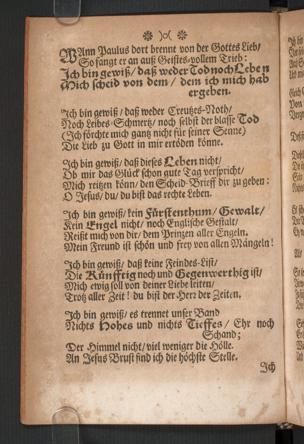 WAnn Paulus dort brennt von der Gottes Lieb/
So fangt er an auß Geistes-vollem Trieb:
Ich bin gewiß/ daß weder Tod noch Leben
Mich scheid von dem/ dem ich mich hab
ergeben.
Ich bin gewiß/ daß weder Creutzes-Noth/
Noch Leibes-Schmertz/ noch selbst der blasse Tod
(Ich förchte mich gantz nicht für seiner Senne)
Die Lieb zu Gott in mir ertöden könne.
Ich bin gewiß/ daß dieses Leben nicht/
Ob mir das Glück schon gute Tag verspricht/
Mich reitzen könn/ den Scheid-Brieff dir zu geben:
O Jesus/ du/ du bist das rechte Leben.
Ich bin gewiß/ kein Fürstenthum/ Gewalt/
Kein Engel nicht/ noch Englische Gestalt/
Reißt mich von dir/ dem Printzen aller Engeln.
Mein Freund ist schön und frey von allen Mängeln!
Ich bin gewiß/ daß keine Feindes-List/
Die Künfftig noch und Gegenwerthig ist/
Mich ewig soll von deiner Liebe leiten/
Trotz aller Zeit! du bist der Herr der Zeiten.
Ich bin gewiß/ es trennet unser Band
Nichts Hohes und nichts Tieffes/ Ehr noch
Schand;
Der Himmel nicht/ viel weniger die Hölle.
An Jesus Brust find ich die höchste Stelle.
Ich